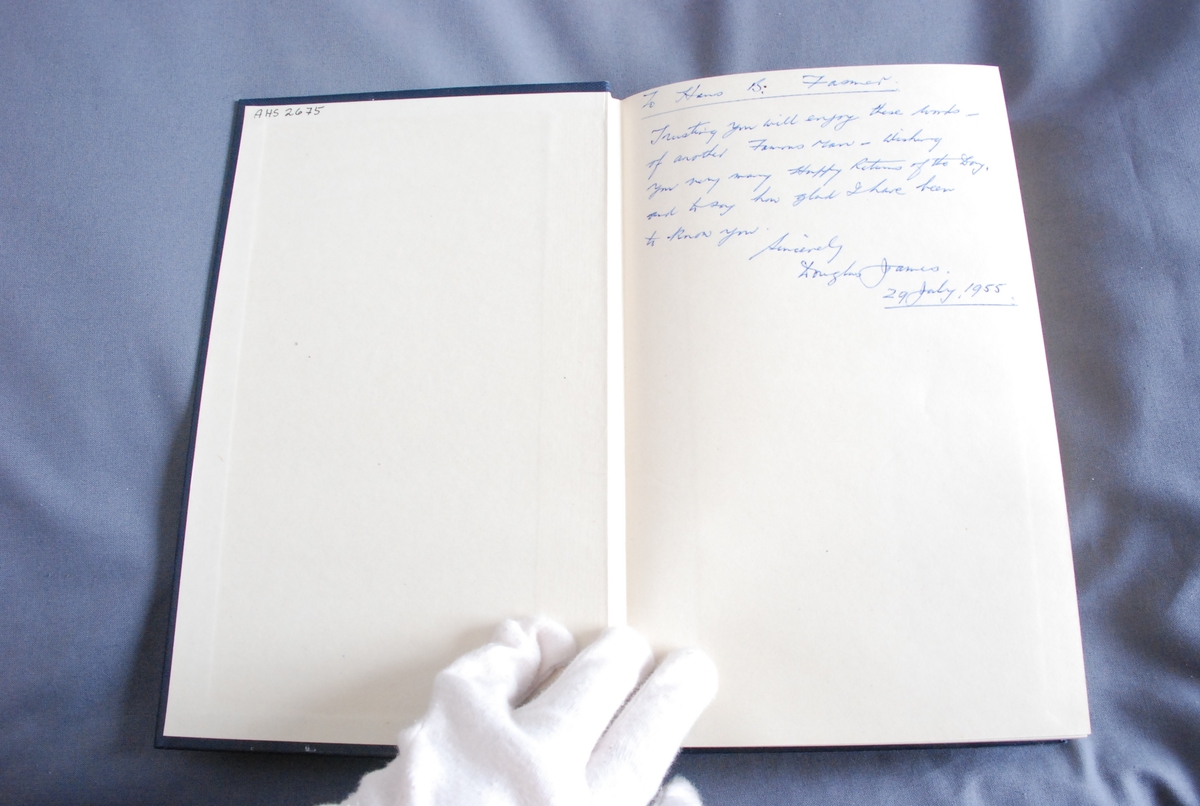 AHS 2675
To Hans B. Farmer.
Trusting you will enjoy these words -
of another Famous Man - Wishing
you very many Happy Returns of the Day,
and to say how glad I have been
to know you.
Sincerely
Douglas James.
29 July, 1955.